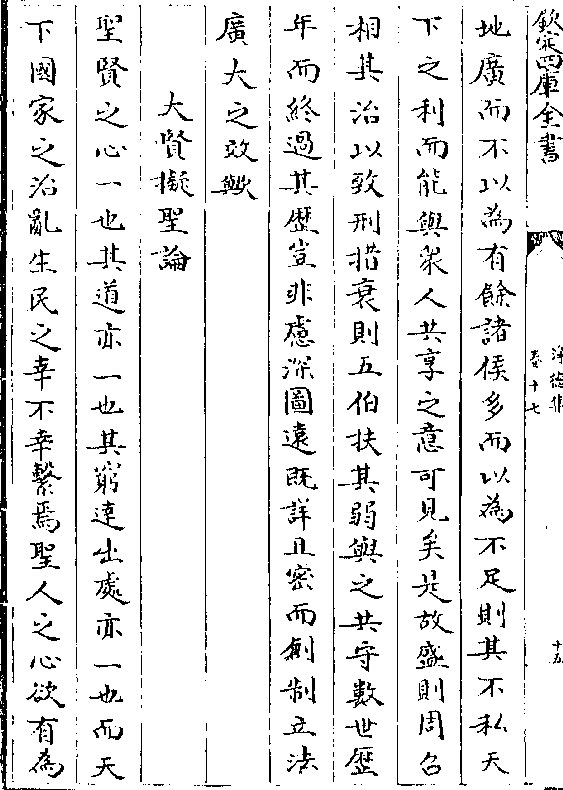 欽定四庫全書
淨德集
卷十七
十五
地廣而不以為有餘諸侯多而以為不足則其不私天
下之利而能與衆人共享之意可見矣是故盛則周召
相其治以致刑措衰則五伯扶其弱與之共守數世歴
年而終過其歴豈非慮深圖遠既詳且密而創制立法
廣大之效歟
大賢擬聖論
聖賢之心一也其道亦一也其窮達出處亦一也而天
下國家之治亂生民之幸不幸繫焉聖人之心欲有為